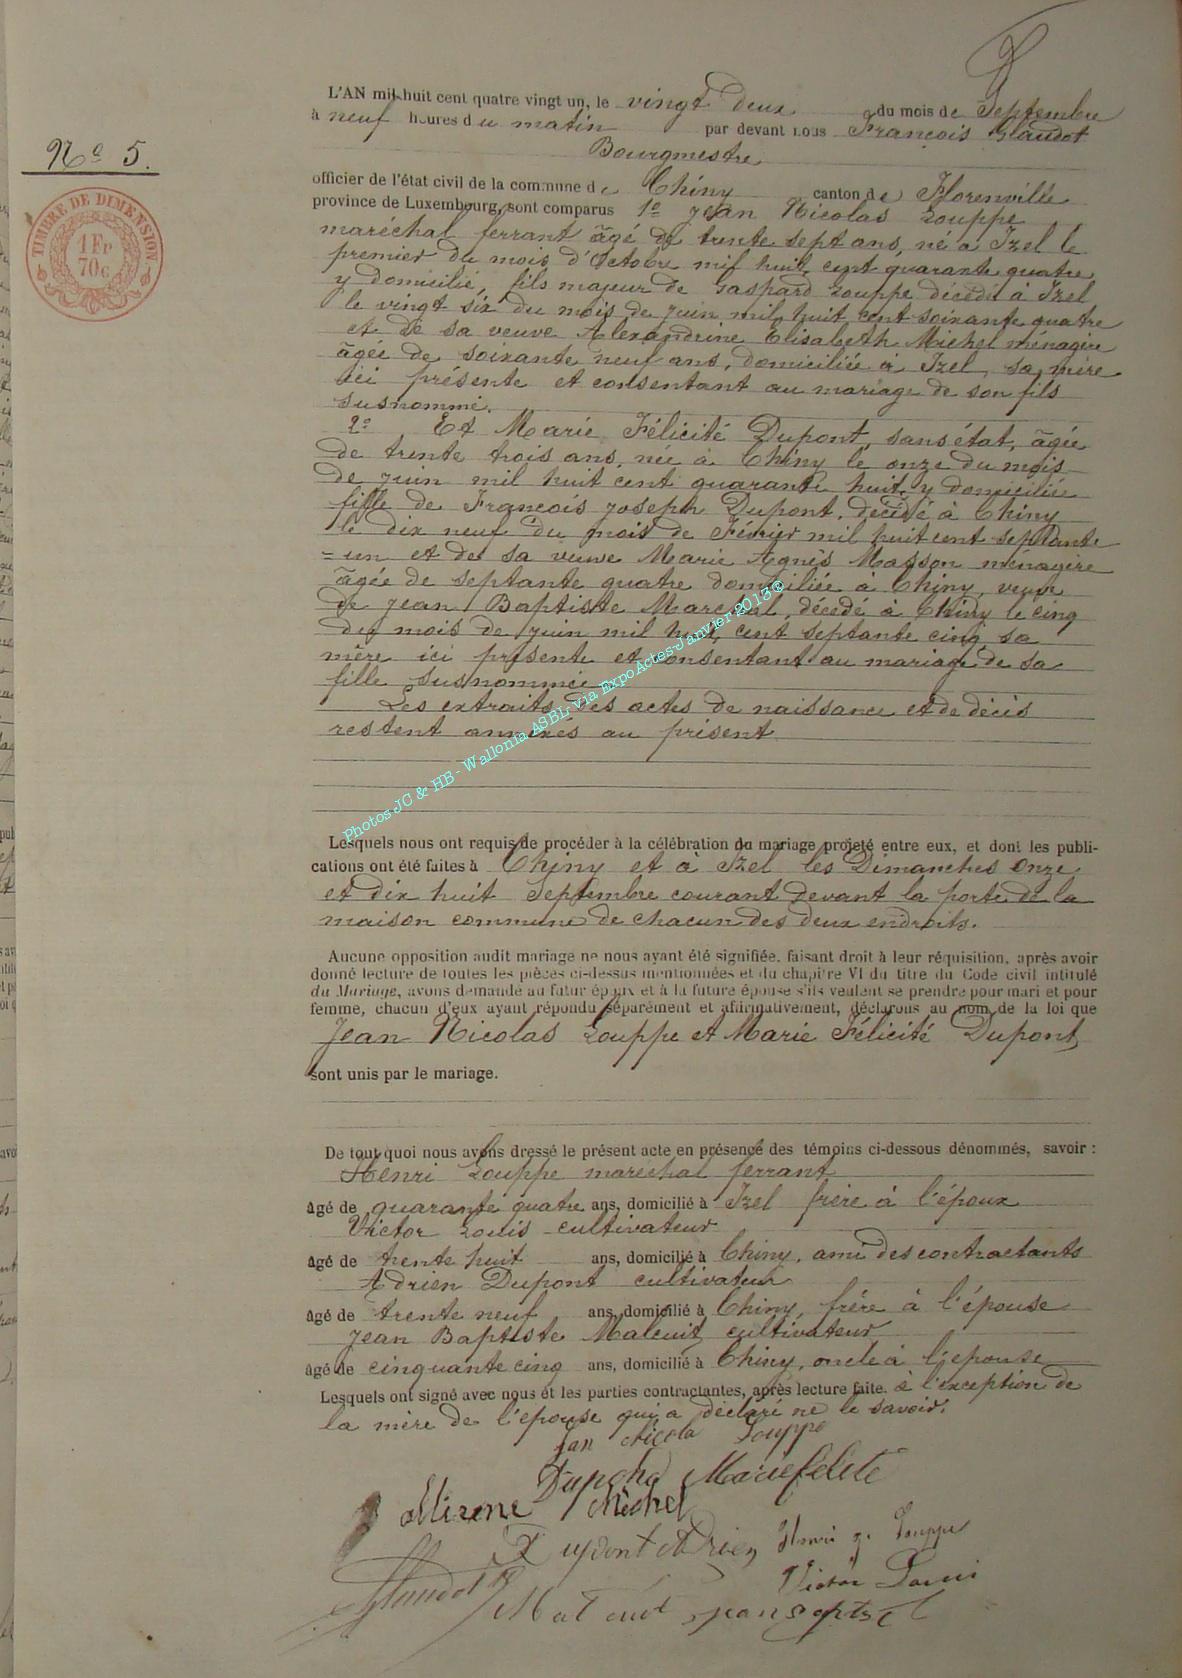 L'AN mil huit cent quatre vingt un, le vingt deux du mois de Septembre
à neuf heures du matin par devant nous François Glaudot
Bourgmestre
Nº 5.
TIMBRE DE DIMENSION
1 Fr
70 c
officier de l'état civil de la commune de Chiny canton de Florenville
province de Luxembourg, sont comparus 1º Jean Nicolas Louppe
maréchal ferrant âgé de trente sept ans, né à Izel le
premier du mois d'Octobre mil huit cent quarante quatre
y domicilié, fils majeur de Gaspard Louppe décédé à Izel
le vingt six du mois de Juin mil huit cent soixante quatre
et de sa veuve Alexandrine Elisabeth Michel ménagère
âgée de soixante neuf ans, domiciliée à Izel, sa mère
ici présente et consentant au mariage de son fils
susnommé.
2º Et Marie Félicité Dupont, sans état, âgée
de trente trois ans, née à Chiny le onze du mois
de Juin mil huit cent quarante huit, y domiciliée
fille de François Joseph Dupont, décédé à Chiny
le dix neuf du mois de Février mil huit cent septante
=un et de sa veuve Marie Agnès Masson ménagère
âgée de septante quatre domiciliée à Chiny, veuve
de Jean Baptiste Marechal, décédé à Chiny le cinq
du mois de Juin mil huit cent septante cinq, sa
mère ici présente et consentant au mariage de sa
fille susnommée
Les extraits des actes de naissance et de décès
restent annexés au présent
Photos JC & HB - Wallonia ASBL, via ExpoActes-Janvier 2013©
Lesquels nous ont requis de procéder à la célébration du mariage projeté entre eux, et dont les publi-
cations ont été faites à Chiny et à Izel les Dimanches onze
et dix huit Septembre courant devant la porte de la
maison commune de chacun des deux endroits.
Aucune opposition audit mariage ne nous ayant été signifiée, faisant droit à leur réquisition, après avoir
donné lecture de toutes les pièces ci-dessus mentionnées et du chapitre VI du titre du Code civil intitulé
du Mariage, avons demandé au futur époux et à la future épouse s'ils veulent se prendre pour mari et pour
femme, chacun d'eux ayant répondu séparément et affirmativement, déclarons au nom de la loi que
Jean Nicolas Louppe et Marie Félicité Dupont
sont unis par le mariage.
De tout quoi nous avons dressé le présent acte en présence des témoins ci-dessous dénommés, savoir :
Henri Louppe maréchal ferrant
âgé de quarante quatre ans, domicilié à Izel frère à l'époux
Victor Louis cultivateur
âgé de trente huit ans, domicilié à Chiny, ami des contractants
Adrien Dupont cultivateur
âgé de trente neuf ans, domicilié à Chiny, frère à l'épouse
Jean Baptiste Maleuit cultivateur
âgé de cinquante cinq ans, domicilié à Chiny, oncle à l'épouse
Lesquels ont signé avec nous et les parties contractantes, après lecture faite. à l'exception de
la mère de l'épouse qui a déclaré ne le savoir.
Jan Nicola Louppe
Marie felicité
Michel
Dupont Adrien Henri J. Louppe
Victor Louis
Glaudot